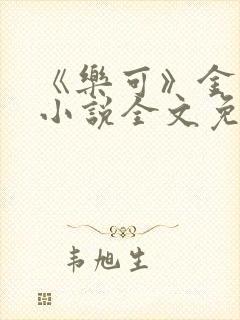 《樂可》金
小說全文免
韦旭生